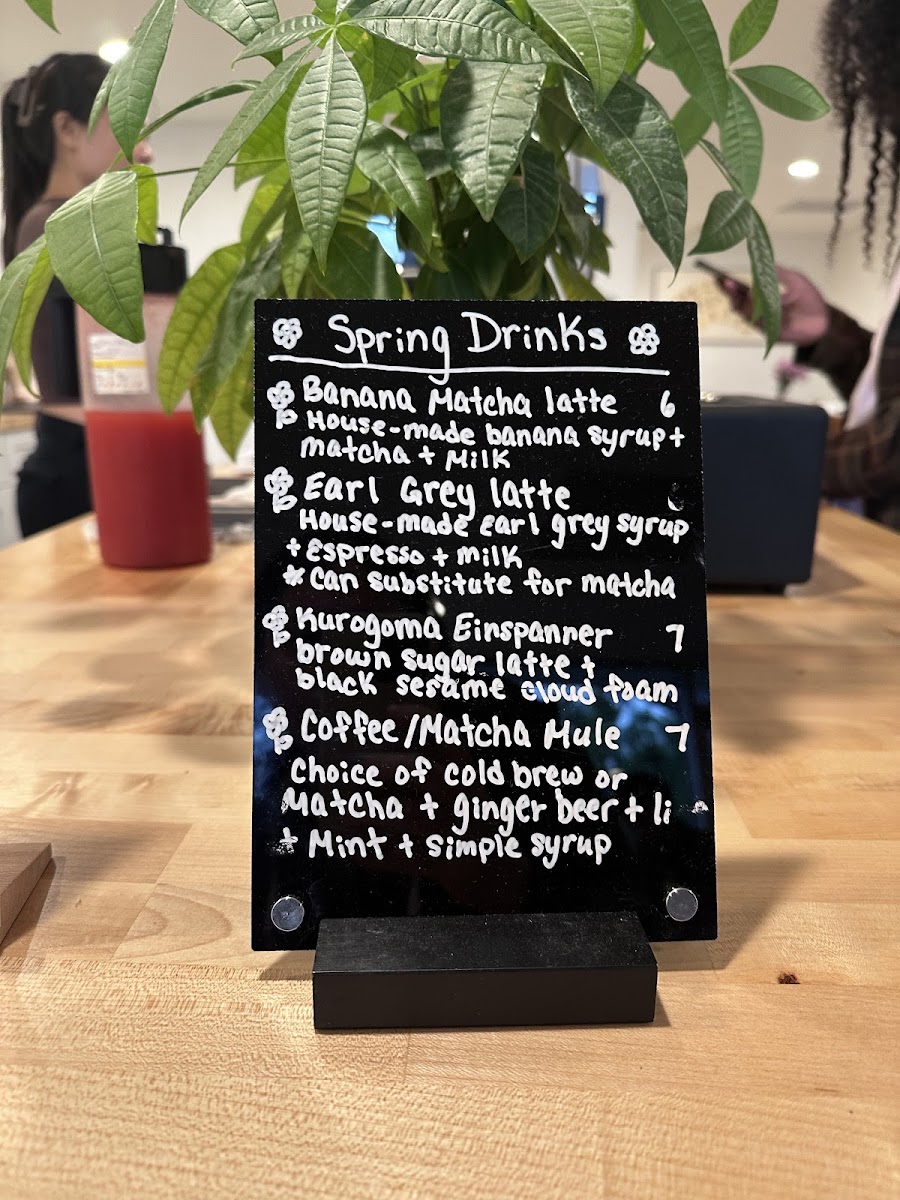 Spring Drinks
Banana Matcha latte 6
House-made banana syrup +
matcha + Milk
Earl Grey latte
House-made earl grey syrup
+ Espresso + milk
* Can substitute for matcha
Kurogoma Einspanner 7
brown sugar latte +
black sesame cloud foam
Coffee/Matcha Mule 7
Choice of cold brew or
Matcha + ginger beer + li
+ Mint + simple syrup